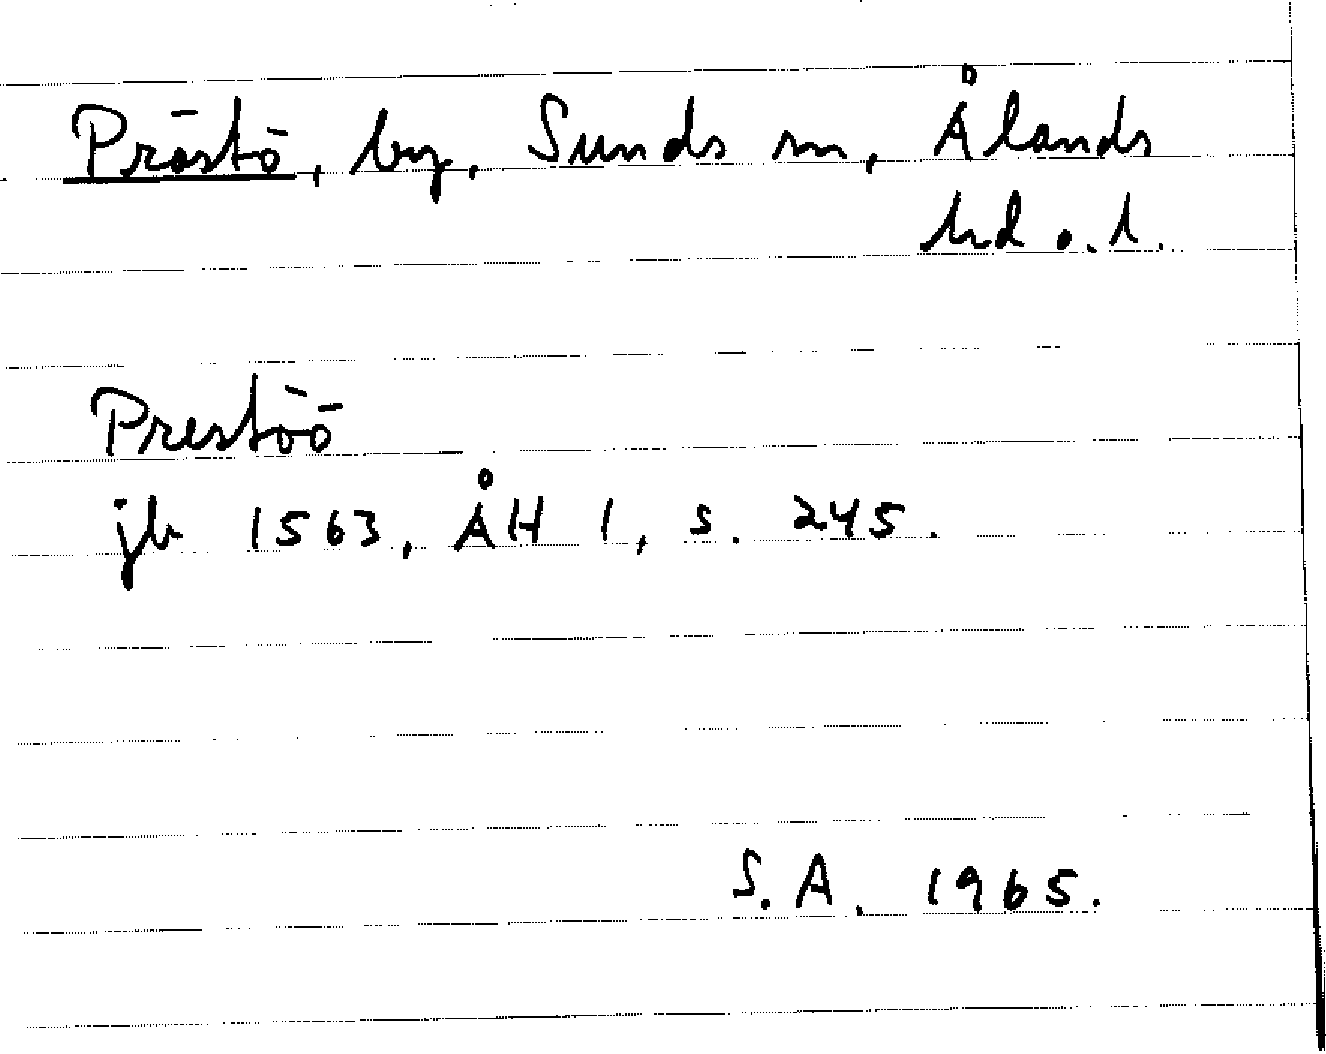 Prästö, by, Sunds sn, Ålands
hd o. l.
Prestöö
jb 1563, ÅH 1, s. 245.
S. A. 1965.